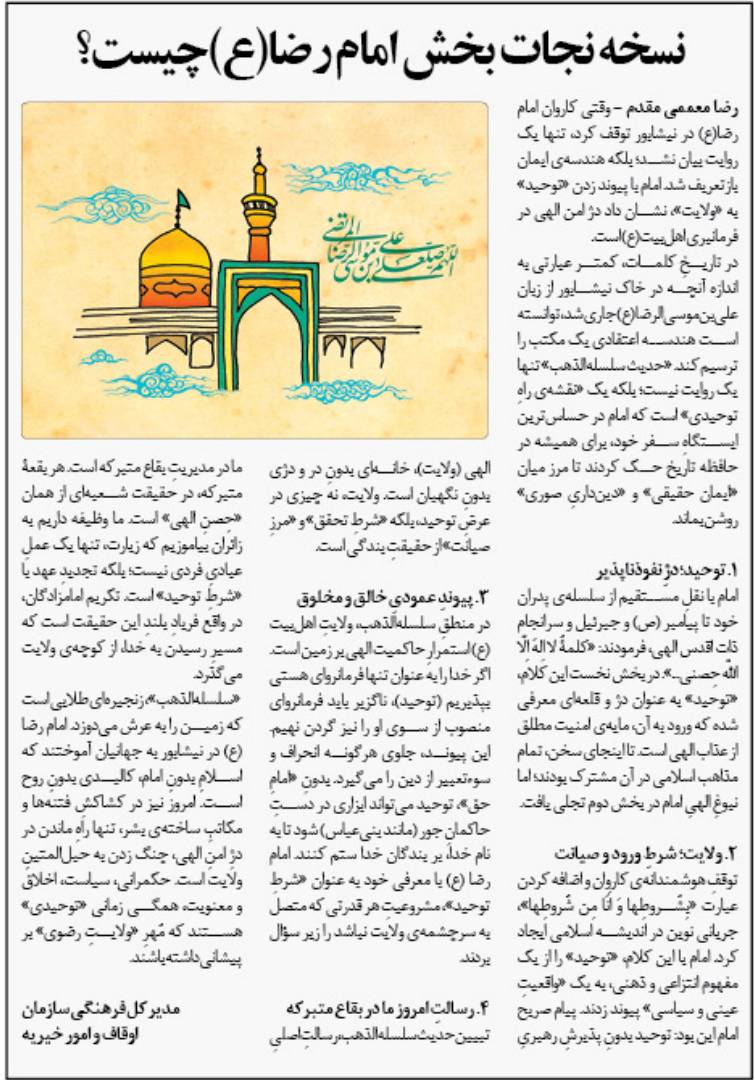 نسخه نجات بخش امام رضا(ع) چیست؟
رضا معممی مقدم - وقتی کاروان امام
رضا(ع) در نیشابور توقف کرد، تنها یک
روایت بیان نشد؛ بلکه هندسه‌ی ایمان
بازتعریف شد. امام با پیوند زدن «توحید»
به «ولایت»، نشان داد دژ امن الهی در
فرمانبری اهل‌بیت(ع) است.
در تاریخِ کلمات، کمتر عبارتی به
اندازه آنچه در خاک نیشابور از زبان
علی‌بن‌موسی‌الرضا(ع) جاری شد، توانسته
است هندسه اعتقادی یک مکتب را
ترسیم کند. «حدیث سلسله‌الذهب» تنها
یک روایت نیست؛ بلکه یک «نقشه‌ی راهِ
توحیدی» است که امام در حساس‌ترین
ایستگاه سفر خود، برای همیشه در
حافظه تاریخ حک کردند تا مرز میان
«ایمان حقیقی» و «دین‌داریِ صوری»
روشن بماند.
۱. توحید؛ دژِ نفوذناپذیر
امام با نقلِ مستقیم از سلسله‌ی پدران
خود تا پیامبر (ص) و جبرئیل و سرانجام
ذات اقدس الهی، فرمودند: «کلمةُ لا اله الّا
اللّه حِصنی...». در بخش نخست این کلام،
«توحید» به عنوان دژ و قلعه‌ای معرفی
شده که ورود به آن، مایه‌ی امنیت مطلق
از عذاب الهی است. تا اینجای سخن، تمام
مذاهب اسلامی در آن مشترک بودند؛ اما
نبوغِ الهیِ امام در بخش دوم تجلی یافت.
۲. ولایت؛ شرطِ ورود و صیانت
توقف هوشمندانه‌ی کاروان و اضافه کردن
عبارت «بِشُروطها وَ أنَا مِن شُروطها»،
جریانی نوین در اندیشه اسلامی ایجاد
کرد. امام با این کلام، «توحید» را از یک
مفهوم انتزاعی و ذهنی، به یک «واقعیتِ
عینی و سیاسی» پیوند زدند. پیام صریح
امام این بود: توحید بدونِ پذیرشِ رهبریِ
الهی (ولایت)، خانه‌ای بدون در و دژی
بدونِ نگهبان است. ولایت، نه چیزی در
عرضِ توحید، بلکه «شرطِ تحقق» و «مرزِ
صیانت» از حقیقتِ بندگی است.
۳. پیوندِ عمودیِ خالق و مخلوق
در منطقِ سلسله‌الذهب، ولایتِ اهل‌بیت
(ع) استمرار حاکمیت الهی بر زمین است.
اگر خدا را به عنوان تنها فرمانروای هستی
بپذیریم (توحید)، ناگزیر باید فرمانروای
منصوب از سوی او را نیز گردن نهیم.
این پیوند، جلوی هرگونه انحراف و
سوءتعبیر از دین را می گیرد. بدون «امامِ
حق»، توحید می‌تواند ابزاری در دستِ
حاکمان جور (مانند بنی‌عباس) شود تا به
نام خدا، بر بندگان خدا ستم کنند. امام
رضا (ع) با معرفی خود به عنوان «شرطِ
توحید»، مشروعیتِ هر قدرتی که متصل
به سرچشمه‌ی ولایت نباشد را زیر سؤال
بردند.
۴. رسالتِ امروز ما در بقاع متبرکه
تبیین حدیث سلسله‌الذهب، رسالتِ اصلیِ
ما در مدیریتِ بقاع متبرکه است. هر بقعهٔ
متبرکه، در حقیقت شعبه‌ای از همان
«حِصنِ الهی» است. ما وظیفه داریم به
زائران بیاموزیم که زیارت، تنها یک عملِ
عبادیِ فردی نیست؛ بلکه تجدیدِ عهد با
«شرطِ توحید» است. تکریم امامزادگان،
در واقع فریادِ بلندِ این حقیقت است که
مسیرِ رسیدن به خدا، از کوچه‌ی ولایت
می‌گذرد.
«سلسله‌الذهب»، زنجیره‌ای طلایی است
که زمین را به عرش می‌دوزد. امام رضا
(ع) در نیشابور به جهانیان آموختند که
اسلامِ بدونِ امام، کالبدی بدونِ روح
است. امروز نیز در کشاکشِ فتنه‌ها و
مکاتبِ ساخته‌ی بشر، تنها راهِ ماندن در
دژِ امنِ الهی، چنگ زدن به حبل‌المتینِ
ولایت است. حکمرانی، سیاست، اخلاق
و معنویت، همگی زمانی «توحیدی»
هستند که مُهرِ «ولایتِ رضوی» بر
پیشانی داشته باشند.
مدیر کل فرهنگی سازمان
اوقاف و امور خیریه
اللهم صل علی علی بن موسی الرضا المرتضی